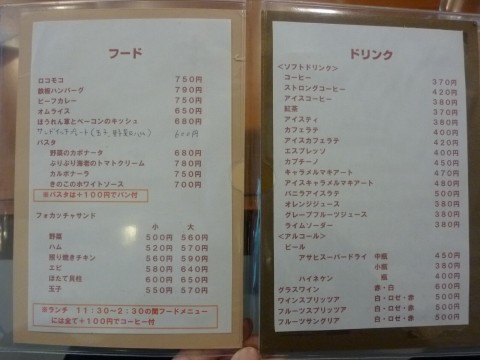 フード
ロコモコ 750円
鉄板ハンバーグ 790円
ビーフカレー 750円
オムライス 650円
ほうれん草とベーコンのキッシュ 680円
サンドイッチプレート(玉子、野菜 600円
パスタ
野菜のカポナータ 680円
ぷりぷり海老のトマトクリーム 780円
カルボナーラ 750円
きのこのホワイトソース 700円
※パスタは+100円でパン付
フォカッチャサンド
小 大
野菜 500円 560円
ハム 520円 570円
照り焼きチキン 560円 590円
エビ 580円 640円
ほたて貝柱 600円 650円
玉子 550円 570円
※ランチ 11:30~2:30の間フードメニュー
には全て+100円でコーヒー付
ドリンク
<ソフトドリンク>
コーヒー 370円
ストロングコーヒー 420円
アイスコーヒー 380円
紅茶 370円
アイスティ 380円
カフェラテ 400円
アイスカフェラテ 420円
エスプレッソ 400円
カプチーノ 450円
キャラメルマキアート 470円
アイスキャラメルマキアート 480円
バニラアイスラテ 500円
オレンジジュース 380円
グレープフルーツジュース 380円
ライムソーダー 380円
<アルコール>
ビール
アサヒスーパードライ 中瓶 450円
小瓶 380円
ハイネケン 瓶 400円
グラスワイン 赤・白 600円
ワインスプリッツァ 白・ロゼ・赤 500円
フルーツスプリッツァ 白・ロゼ・赤 500円
フルーツサングリア 白・ロゼ・赤 500円